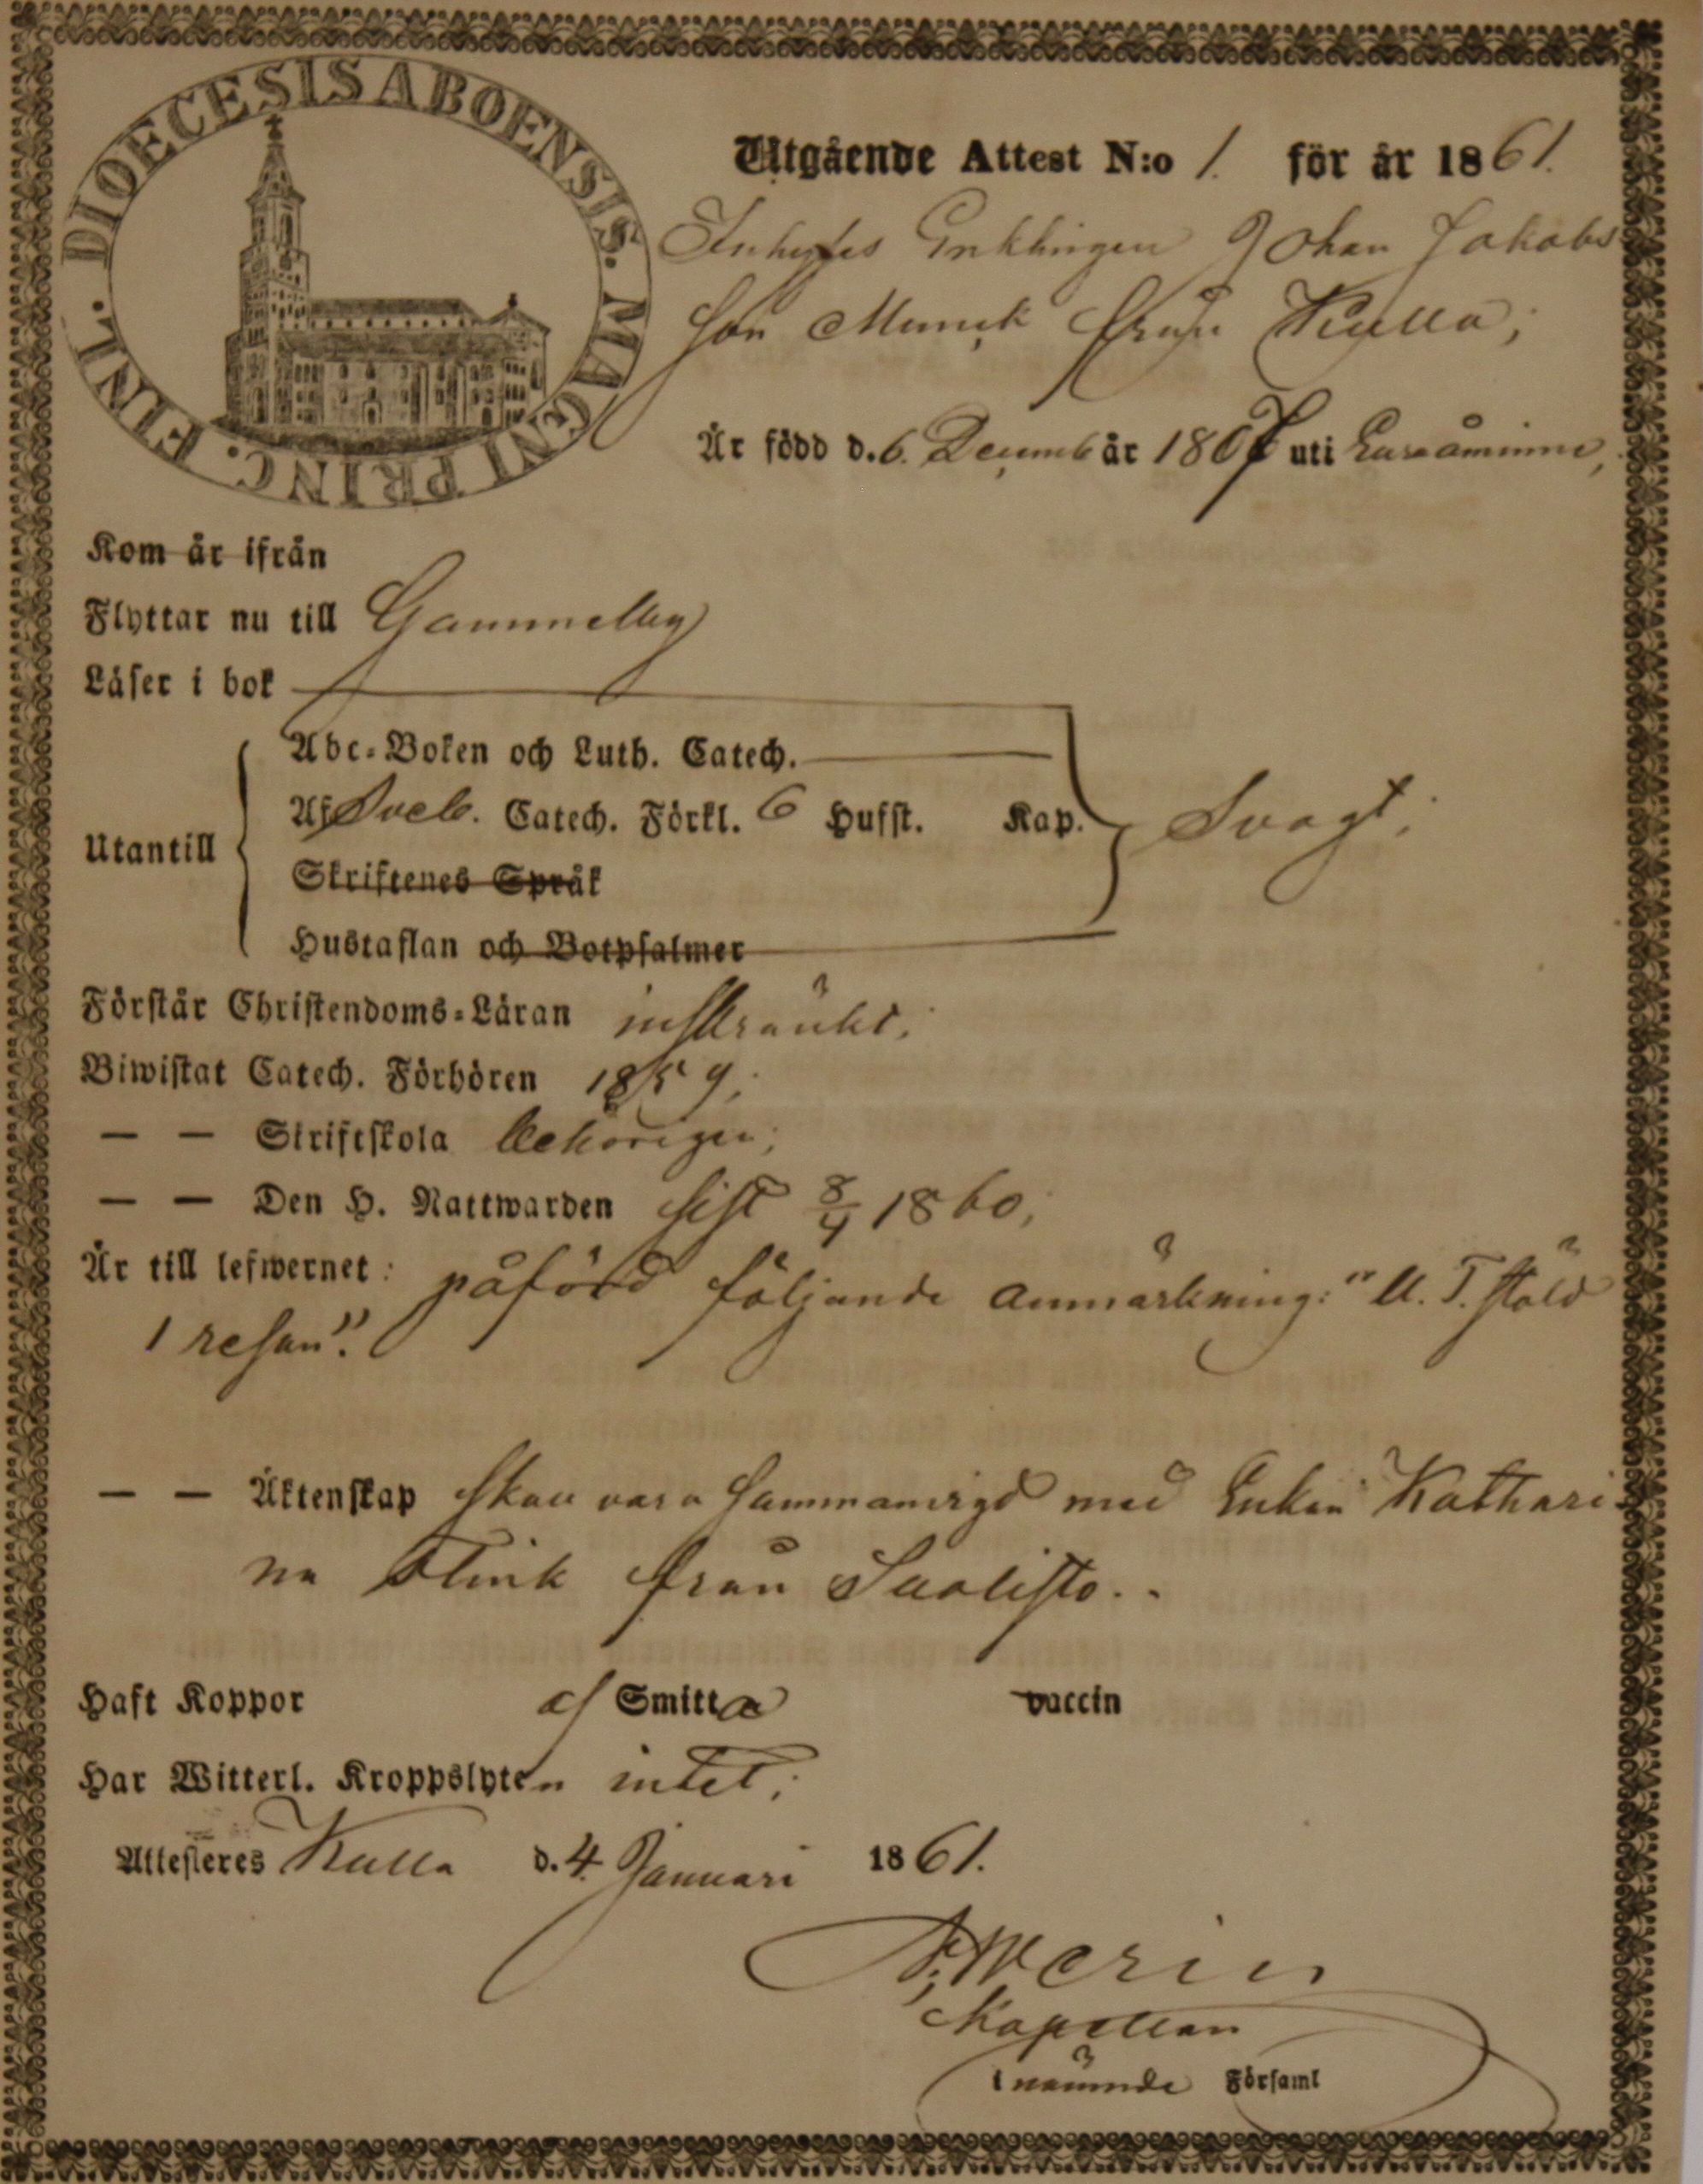 DIOECESIS ABOENSIS. MAGNI PRINC. FINL.
Utgående Attest N:o 1. för år 1861.
Inhyses Enklingen Johan Jakobs
son Munck från Kulla;
Är född d. 6. Decemb år 1807 uti Euraåminne,
Kom år ifrån
Flyttar nu till Gammelby
Läser i bok
Utantill
Abc-Boken och Luth. Catech.
Af Sveb. Catech. Förkl. 6 Hufst. Kap. Svagt;
Skriftenes Språk
Hustaflan och Botpsalmer
Förstår Christendoms-Läran inskränkt;
Biwistat Catech. Förhören 1859;
— — Skriftskola behörigen;
— — Den H. Nattwarden sist 8/4 1860;
Är till lefwernet: påförd följande anmärkning: "U. T. stöld
1 resan".
— — Äktenskap skall vara sammanvigd med Enkan Kathari-
na Flink från Suolisto.
Haft Koppor af Smitta vaccin
Har Witterl. Kroppslyten intet;
Attesteres Kulla d. 4. Januari 1861.
Kapellan
i nämnde Församl